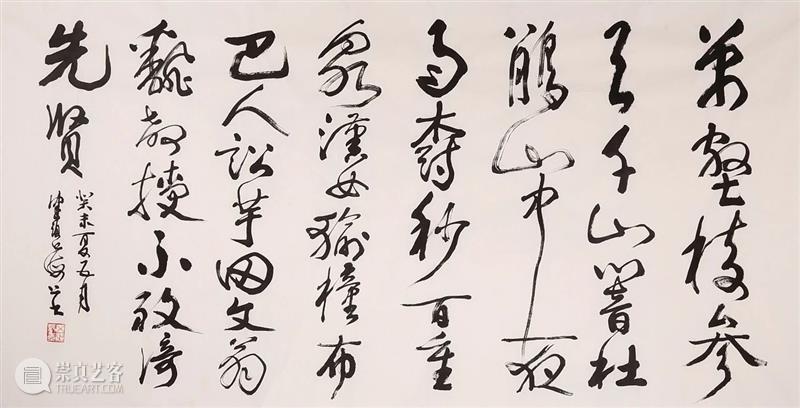 萬壑樹參
天千山響杜
鵑山中一夜
雨樹杪百重
泉漢女輸橦布
巴人訟芋田文翁
翻教授不敢倚
先賢
癸未夏五月
崇真艺客
TRUEART.COM